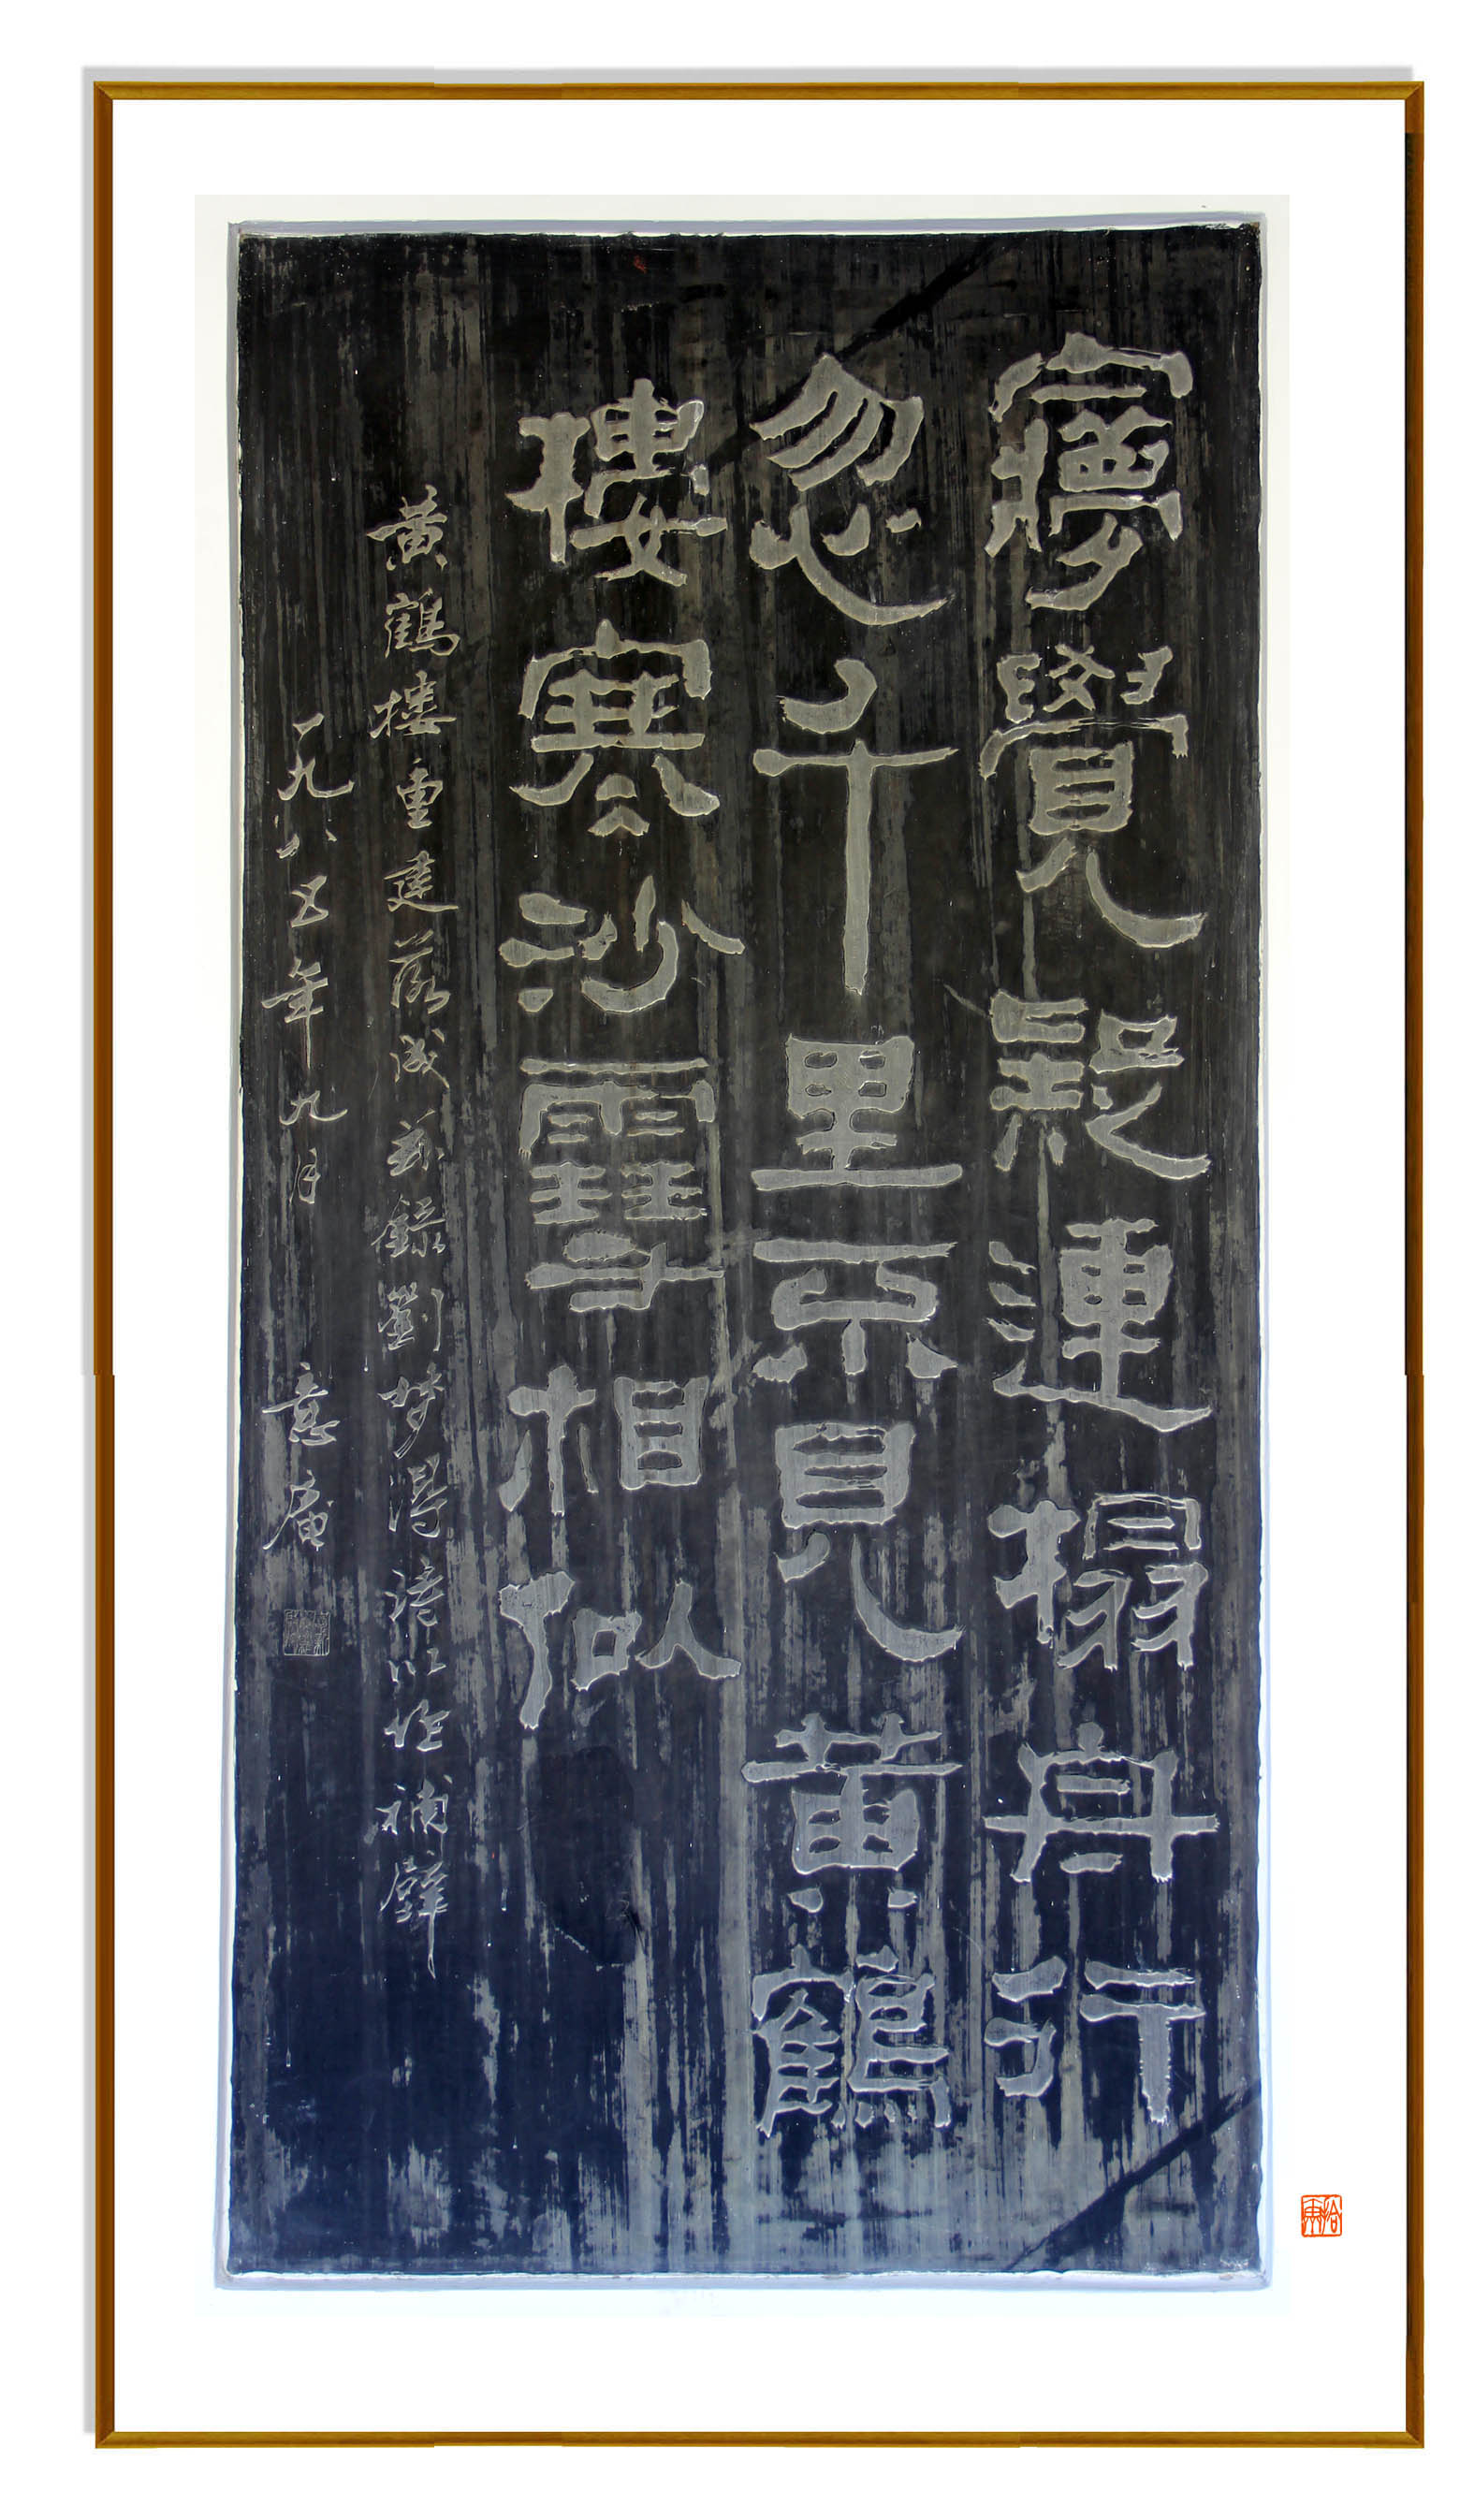 㝱覺疑連榻舟行
忽千里不見黃鶴
樓寒沙雪相似
黃鶴樓重建落成錄劉梦淂詩以作補壁
一九八五年九月 意庵